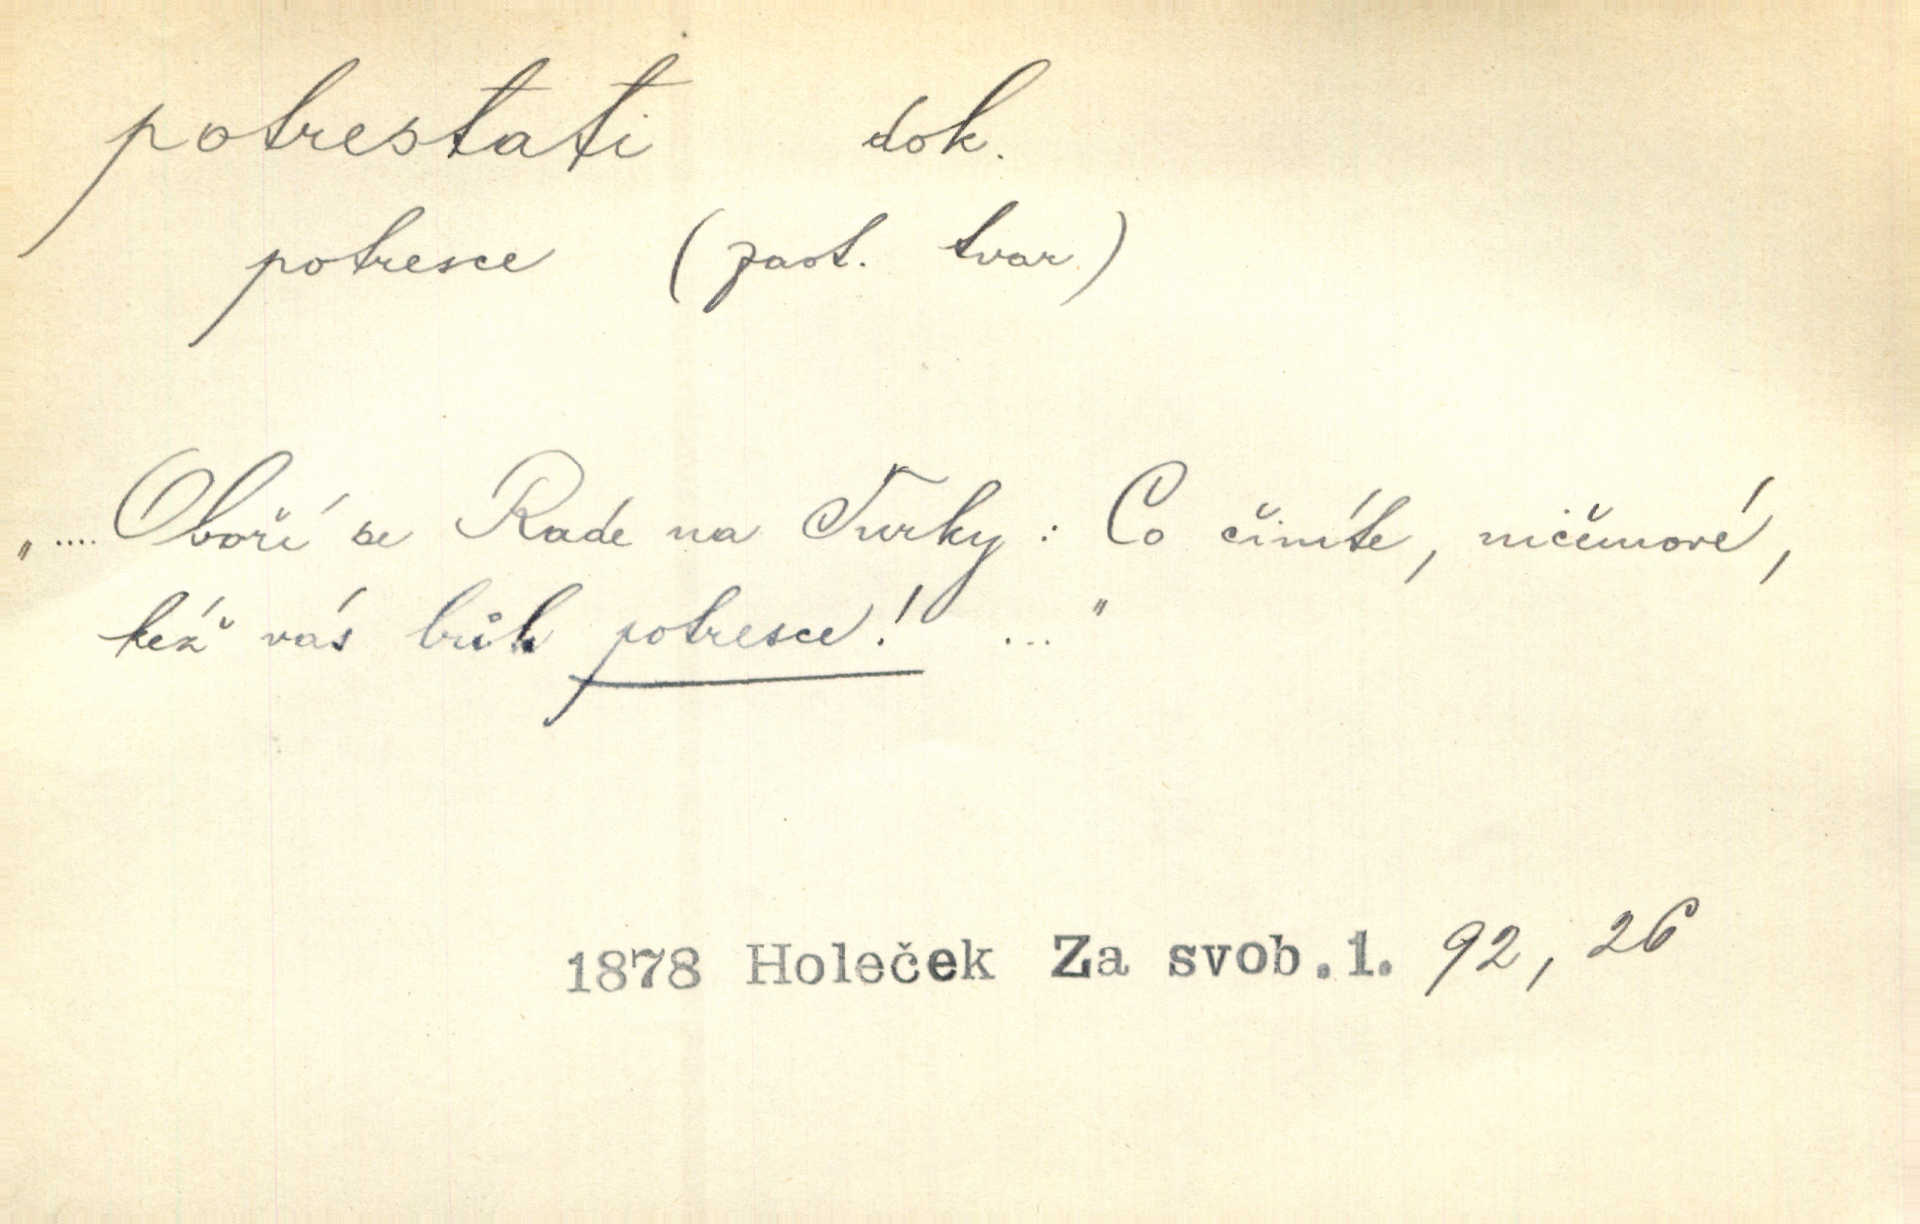 potrestati dok.
potresce (zast. tvar)
„.... Oboří se Rade na Turky: Co činíte, ničemové,
kéž vás bůh potresce! ..."
1878 Holeček Za svob.1. 92, 26